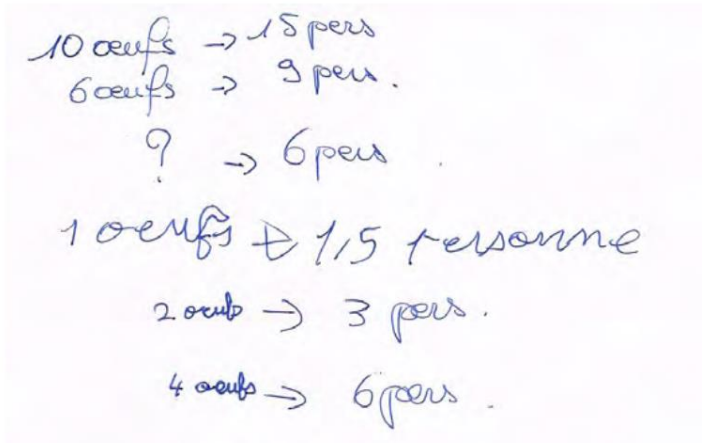 10 oeufs → 15 pers
6 oeufs → 9 pers.
? → 6 pers.
1 oeufs → 1,5 personne
2 oeufs → 3 pers.
4 oeufs → 6 pers.